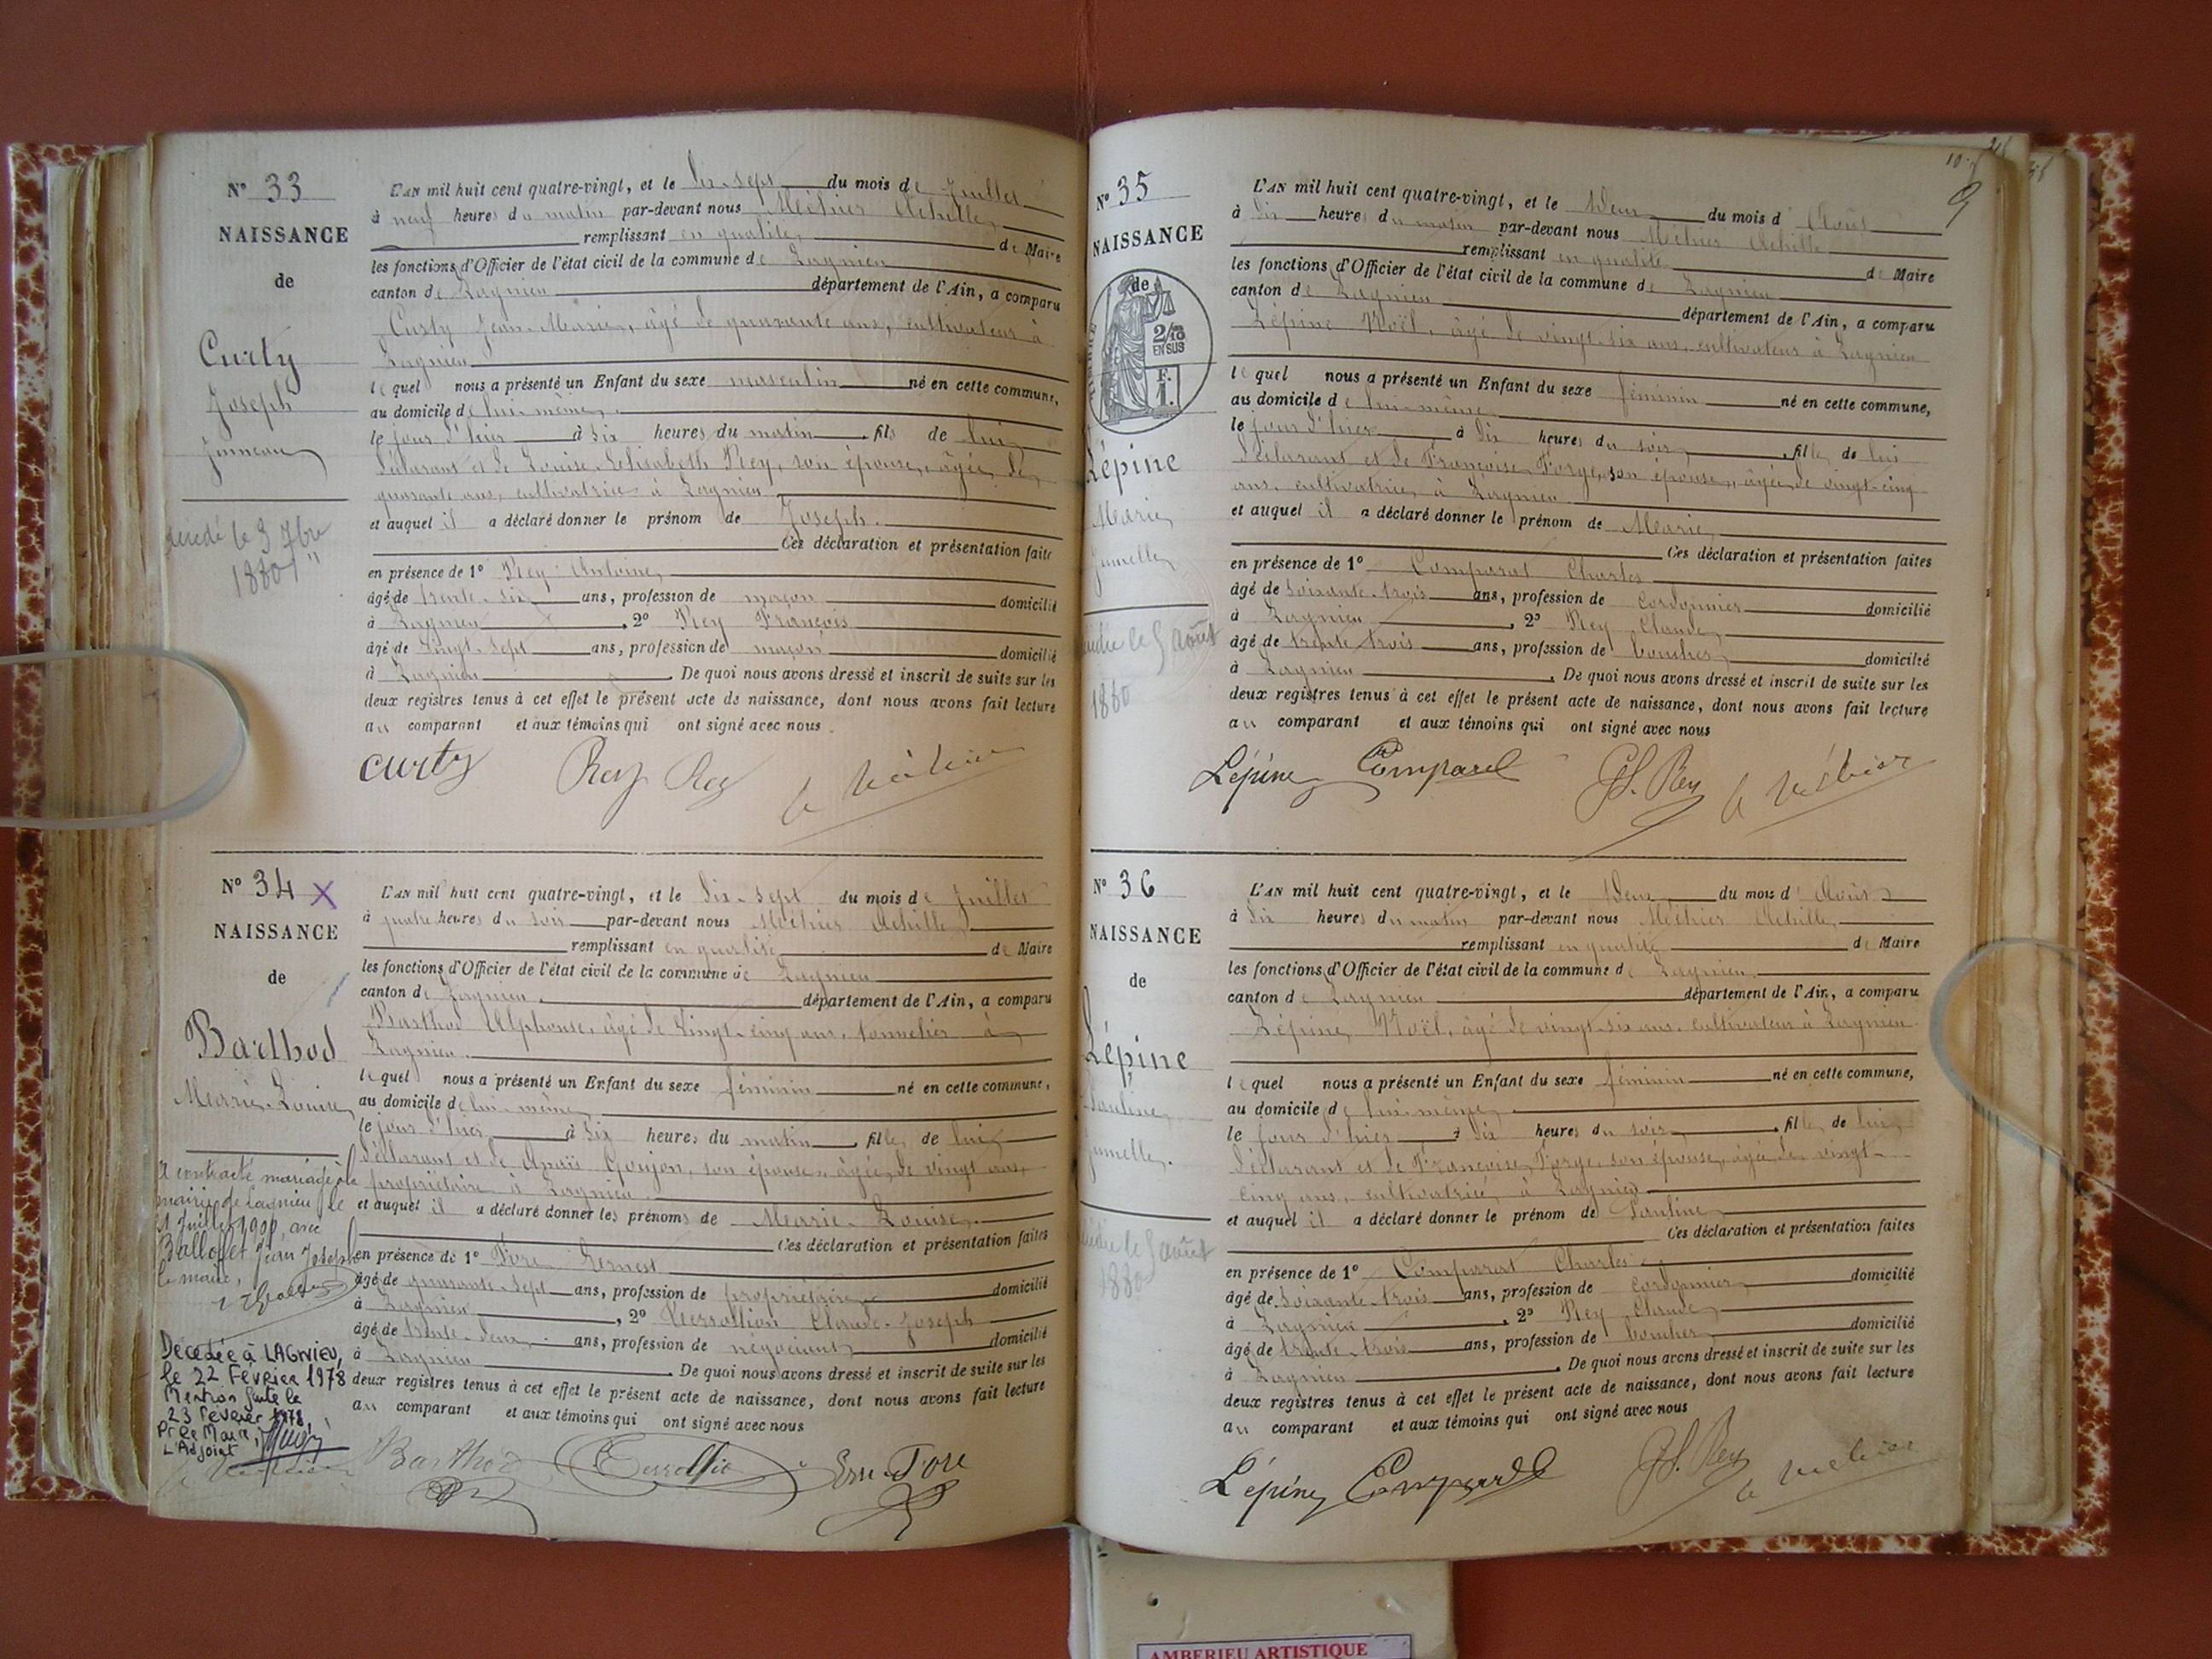 N° 33
NAISSANCE
de
Curty
Joseph
Jumeau
décédé le 3 7bre
1880
L'AN mil huit cent quatre-vingt, et le dix-sept du mois de Juillet
à neuf heures du matin par-devant nous Méhier Achille
remplissant en qualité de Maire
les fonctions d'Officier de l'état civil de la commune de Lagnieu
canton de Lagnieu département de l'Ain, a comparu
Curty Jean-Marie, âgé de quarante ans, cultivateur à
Lagnieu
lequel nous a présenté un Enfant du sexe masculin né en cette commune,
au domicile de lui-même,
le jour d'hier à six heures du matin, fils de lui
déclarant et de Louise Elisabeth Rey, son épouse, âgée de
quarante ans, cultivatrice à Lagnieu
et auquel il a déclaré donner le prénom de Joseph.
Ces déclaration et présentation faites
en présence de 1° Rey Antoine,
âgé de trente-six ans, profession de maçon domicilié
à Lagnieu, 2° Rey François
âgé de vingt-sept ans, profession de maçon domicilié
à Lagnieu. De quoi nous avons dressé et inscrit de suite sur les
deux registres tenus à cet effet le présent acte de naissance, dont nous avons fait lecture
au comparant et aux témoins qui ont signé avec nous.
Curty Rey Rey A Méhier
N° 34 X
NAISSANCE
de
Barthod
Marie-Louise
A contracté mariage à la
mairie de Lagnieu le
Juillet 1900, avec
Balloffet Jean Joseph
le maire,
Décédée à LAGNIEU,
le 22 Février 1978
Mention faite le
23 Février 1978,
Pr Le Maire,
L'Adjoint
L'AN mil huit cent quatre-vingt, et le dix-sept du mois de Juillet
à quatre heures du soir par-devant nous Méhier Achille
remplissant en qualité de Maire
les fonctions d'Officier de l'état civil de la commune de Lagnieu
canton de Lagnieu département de l'Ain, a comparu
Barthod Alphonse, âgé de vingt-cinq ans, tonnelier à
Lagnieu.
lequel nous a présenté un Enfant du sexe féminin né en cette commune,
au domicile de lui-même,
le jour d'hier à six heures du matin, fille de lui
déclarant et de Anaïs Goujon, son épouse, âgée de vingt ans,
propriétaire à Lagnieu
et auquel il a déclaré donner les prénoms de Marie-Louise.
Ces déclaration et présentation faites
en présence de 1° Fore Ernest
âgé de quarante-sept ans, profession de propriétaire domicilié
à Lagnieu, 2° Claude-Joseph
âgé de trente-deux ans, profession de négociant domicilié
à Lagnieu. De quoi nous avons dressé et inscrit de suite sur les
deux registres tenus à cet effet le présent acte de naissance, dont nous avons fait lecture
au comparant et aux témoins qui ont signé avec nous
Barthod Ern. Fore
9
N° 35
NAISSANCE
de
2/10
EN SUS
F.
1.
Lépine
Marie
Jumelle
le 5 août
1880
L'AN mil huit cent quatre-vingt, et le deux du mois d'Août
à dix heures du matin par-devant nous Méhier Achille
remplissant en qualité de Maire
les fonctions d'Officier de l'état civil de la commune de Lagnieu
canton de Lagnieu département de l'Ain, a comparu
Lépine Noël, âgé de vingt-six ans, cultivateur à Lagnieu
lequel nous a présenté un Enfant du sexe féminin né en cette commune,
au domicile de lui-même
le jour d'hier à dix heures du soir, fille de lui
déclarant et de Françoise Forge, son épouse, âgée de vingt-cinq
ans, cultivatrice à Lagnieu
et auquel il a déclaré donner le prénom de Marie
Ces déclaration et présentation faites
en présence de 1° Comparat Charles
âgé de soixante-trois ans, profession de cordonnier domicilié
à Lagnieu, 2° Rey Claude
âgé de trente-trois ans, profession de boucher domicilié
à Lagnieu. De quoi nous avons dressé et inscrit de suite sur les
deux registres tenus à cet effet le présent acte de naissance, dont nous avons fait lecture
au comparant et aux témoins qui ont signé avec nous
Lépine Comparat Rey A Méhier
N° 36
NAISSANCE
de
Lépine
Pauline
Jumelle.
le 5 août
1880
L'AN mil huit cent quatre-vingt, et le deux du mois d'Août
à dix heures du matin par-devant nous Méhier Achille
remplissant en qualité de Maire
les fonctions d'Officier de l'état civil de la commune de Lagnieu
canton de Lagnieu département de l'Ain, a comparu
Lépine Noël, âgé de vingt-six ans, cultivateur à Lagnieu
lequel nous a présenté un Enfant du sexe féminin né en cette commune,
au domicile de lui-même
le jour d'hier à dix heures du soir, fille de lui
déclarant et de Françoise Forge, son épouse, âgée de vingt-
cinq ans, cultivatrice à Lagnieu
et auquel il a déclaré donner le prénom de Pauline
Ces déclaration et présentation faites
en présence de 1° Comparat Charles
âgé de soixante-trois ans, profession de cordonnier domicilié
à Lagnieu, 2° Rey Claude
âgé de trente-trois ans, profession de boucher domicilié
à Lagnieu. De quoi nous avons dressé et inscrit de suite sur les
deux registres tenus à cet effet le présent acte de naissance, dont nous avons fait lecture
au comparant et aux témoins qui ont signé avec nous
Lépine Comparat Rey A Méhier
AMBERIEU ARTISTIQUE